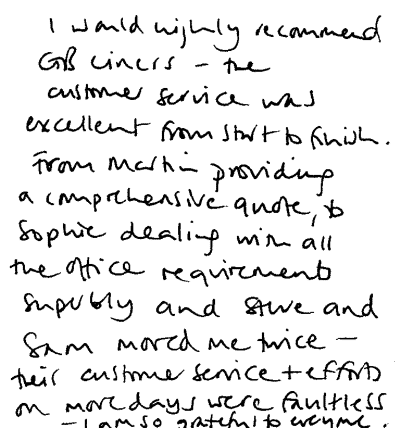 I would highly recommend
GB Liners - the
customer service was
excellent from start to finish.
From Martin providing
a comprehensive quote, to
Sophie dealing with all
the office requirements
superbly and Steve and
Sam moved me twice -
their customer service + efforts
on move days were faultless
- I am so grateful to everyone.